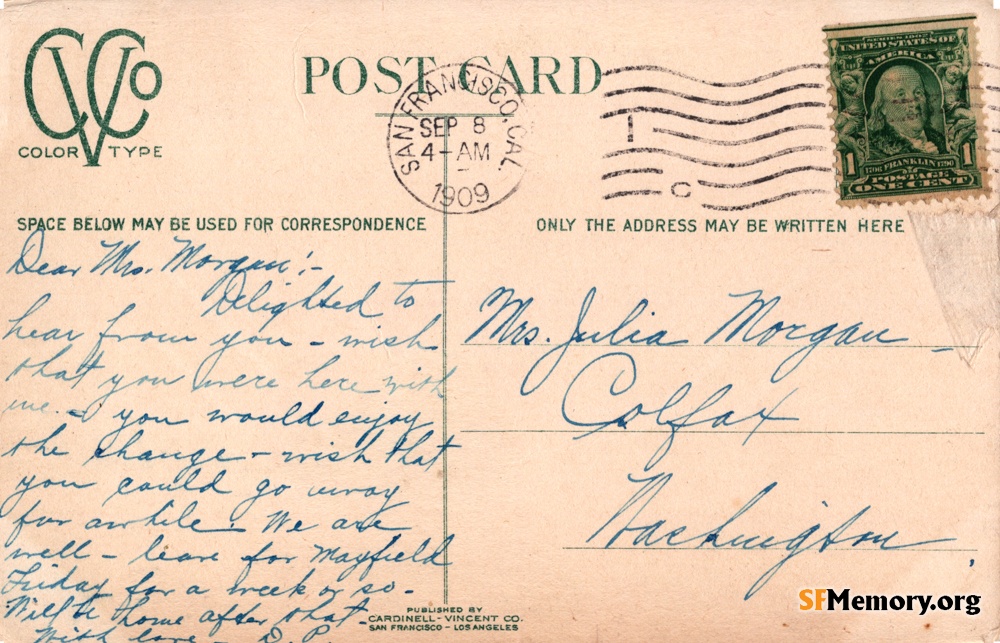 CVCo
COLOR TYPE
POST CARD
SAN FRANCISCO, CAL.
SEP 8
4-AM
1909
1
C
SERIES 1902
UNITED STATES OF AMERICA
1 1706 FRANKLIN 1790 1
POSTAGE
ONE CENT
SPACE BELOW MAY BE USED FOR CORRESPONDENCE
ONLY THE ADDRESS MAY BE WRITTEN HERE
Dear Mrs. Morgan:-
Delighted to
hear from you - wish
that you were here with
me. - you would enjoy
the change - wish that
you could go away
for awhile. We are
well - leave for Mayfield
Friday for a week or so.
Will be home after that -
With love - D. P.
Mrs. Julia Morgan -
Colfax
Washington,
PUBLISHED BY
CARDINELL-VINCENT CO.
SAN FRANCISCO - LOS ANGELES
SFMemory.org